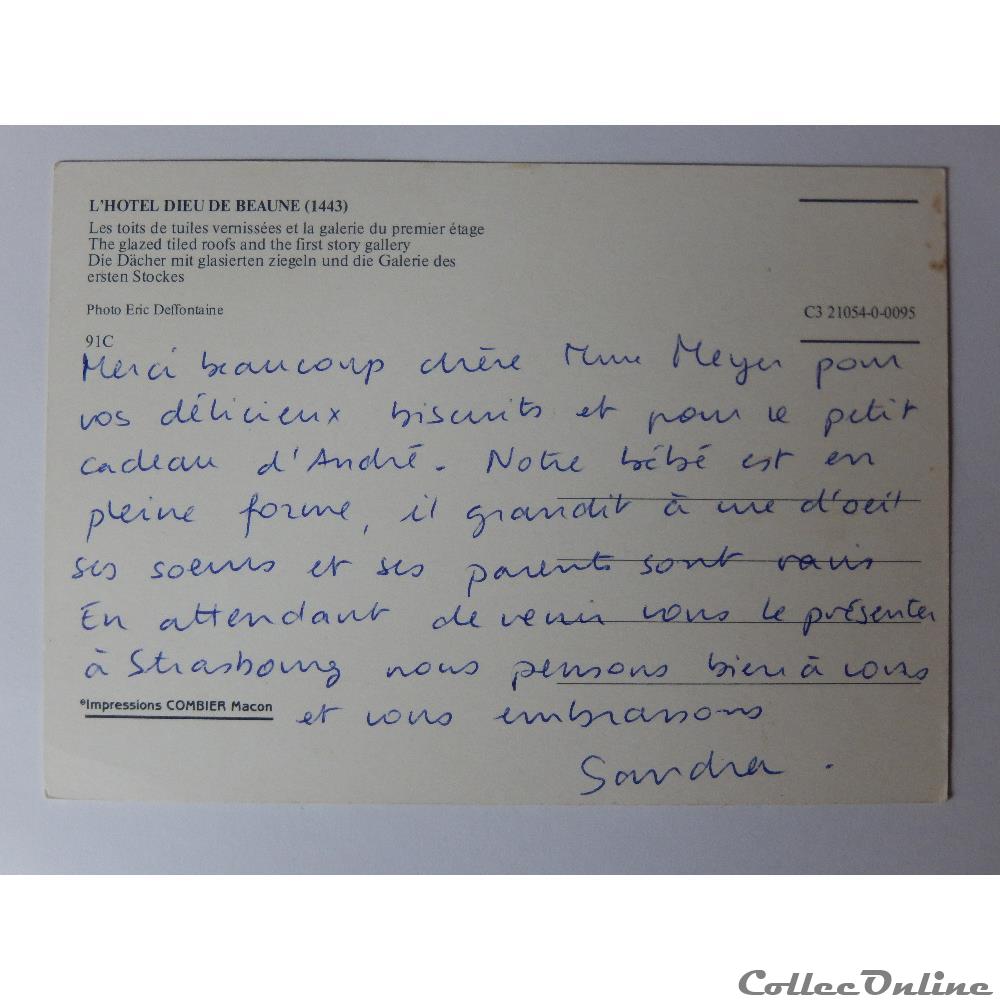 L'HOTEL DIEU DE BEAUNE (1443)
Les toits de tuiles vernissées et la galerie du premier étage
The glazed tiled roofs and the first story gallery
Die Dächer mit glasierten ziegeln und die Galerie des
ersten Stockes
Photo Eric Deffontaine
C3 21054-0-0095
91C
Merci beaucoup chère Mme Meyer pour
vos délicieux biscuits et pour le petit
cadeau d'André. Notre bébé est en
pleine forme, il grandit à vue d'oeil
ses soeurs et ses parents sont ravis
En attendant de venir vous le présenter
à Strasbourg nous pensons bien à vous
et vous embrassons
Sandra.
Impressions COMBIER Macon
CollecOnline